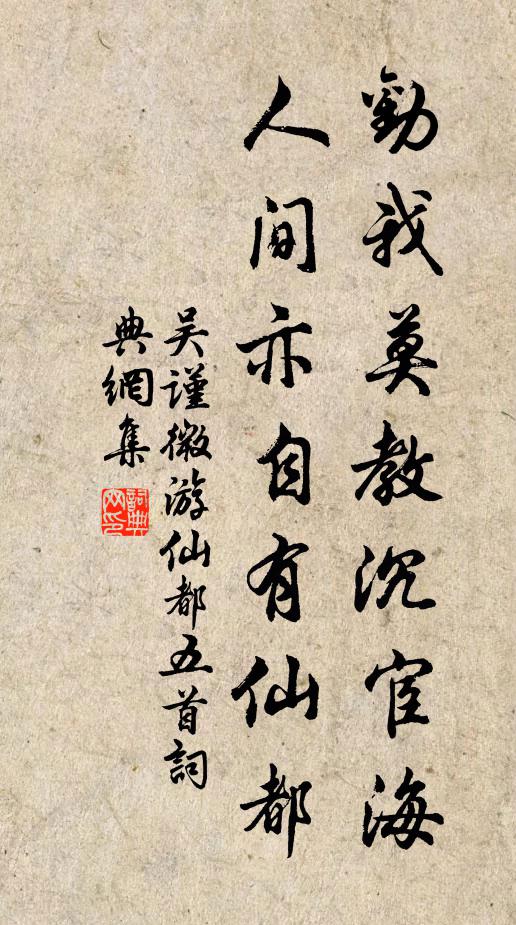 勸我莫教沉宦海
人間亦自有仙都
吴謹微游仙都五首詞
典網集
詞典
网印